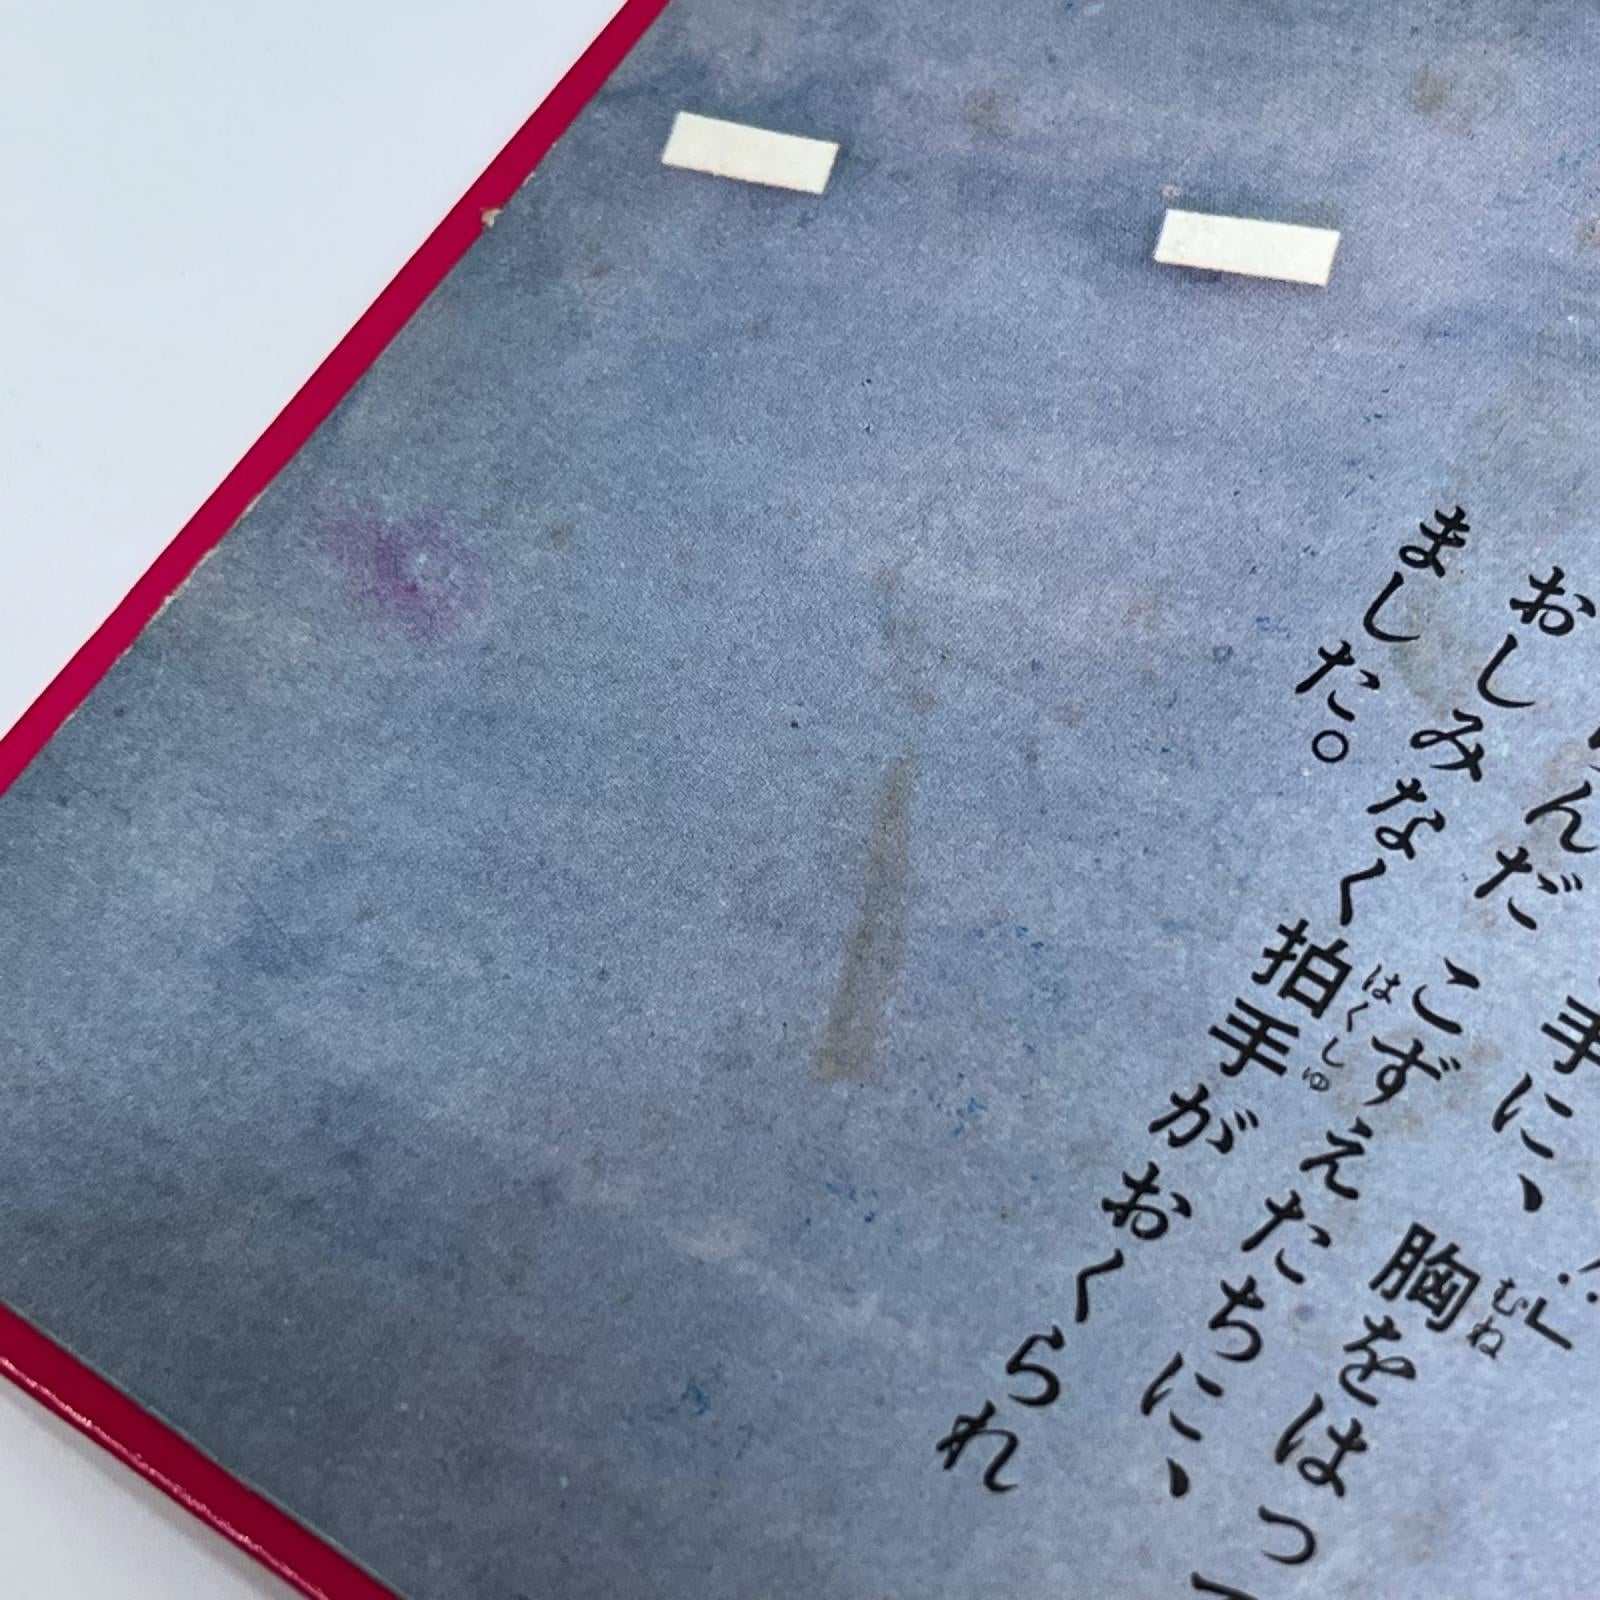 !」
手に、胸をはっ
むね
んだ こずえたちに、
おしみなく拍手がおくられ
はくしゅ
ました。